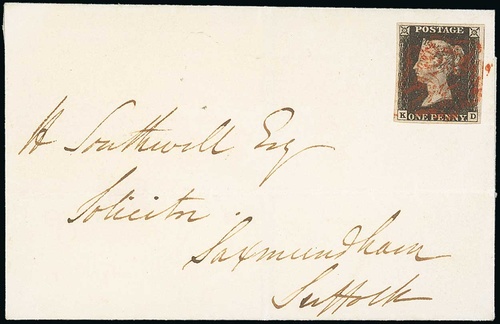 POSTAGE
K ONE PENNY D
H Southwell Esq
Solicitor
Saxmundham
Suffolk